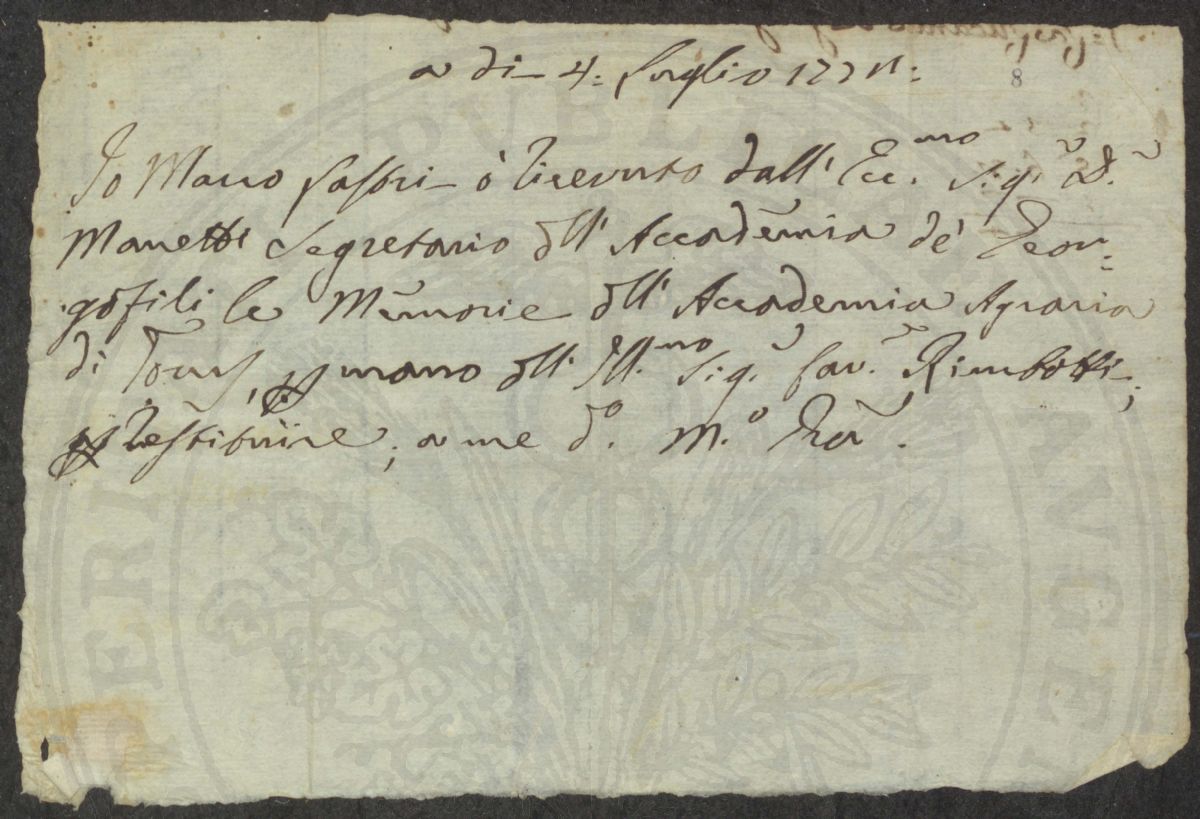 a di 4: Luglio 177
8
Io Marco Lastri ò ricevuto dall' Ecc.mo Sig.r D.r
Manetti Segretario dell' Accademia de' Geor-
gofili le Memorie dell' Accademia Agraria
di Tours, p mano dell' Ill.mo Sig.r Cav.r Rimbotti;
p restituire; a me d.o M.o
PUBLI
PERI
AVGE